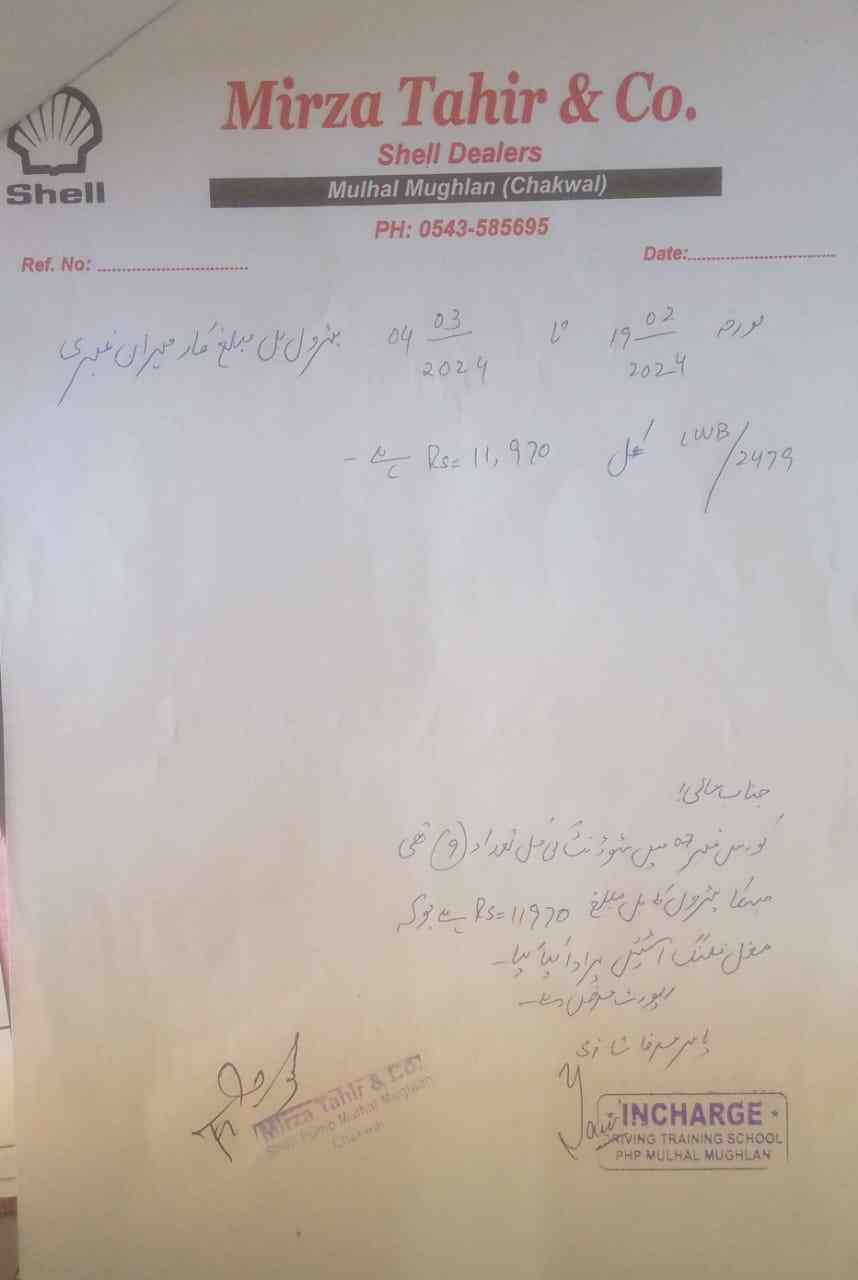 Shell
Mirza Tahir & Co.
Shell Dealers
Mulhal Mughlan (Chakwal)
PH: 0543-585695
Ref. No: ........................................
Date: ........................................
مورخہ 19 02/2024 تا 04 03/2024 پٹرول بل مبلغ کار نمبری
LWB/2479 کل Rs= 11,970 ہے -
جناب عالی!
کورس نمبر 07 میں سٹوڈنٹ کی کل تعداد (9) تھی
جسکا پٹرول کا بل مبلغ Rs=11970 ہے جو کہ
مغل فلنگ اسٹیشن پر ادا کیا گیا -
رپورٹ عرض ہے -
Mirza Tahir & Co.
Shell Pump Mulhal Mughlan
Chakwal
INCHARGE
DRIVING TRAINING SCHOOL
PHP MULHAL MUGHLAN